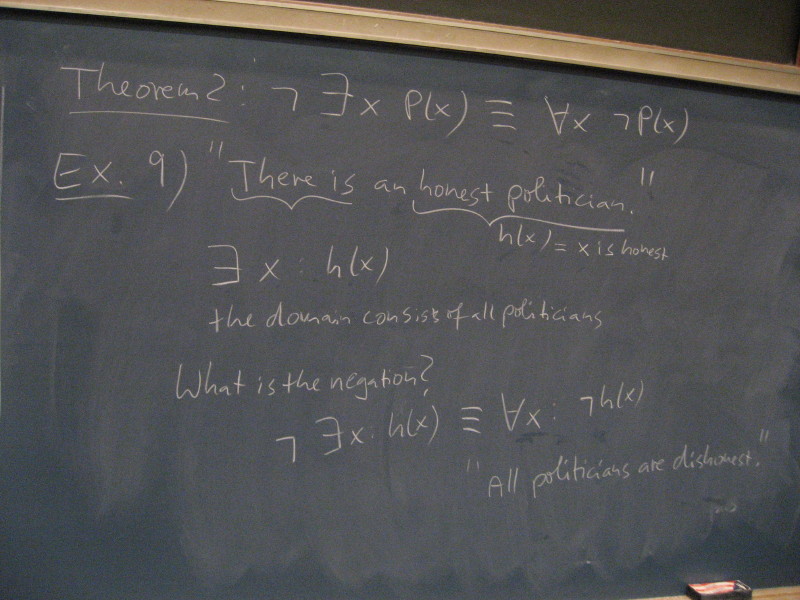 Theorem 2: ¬ ∃x P(x) ≡ ∀x ¬P(x)
Ex. 9) "There is an honest politician."
h(x) = x is honest
∃ x : h(x)
the domain consists of all politicians
What is the negation?
¬ ∃x : h(x) ≡ ∀x : ¬h(x)
"All politicians are dishonest."